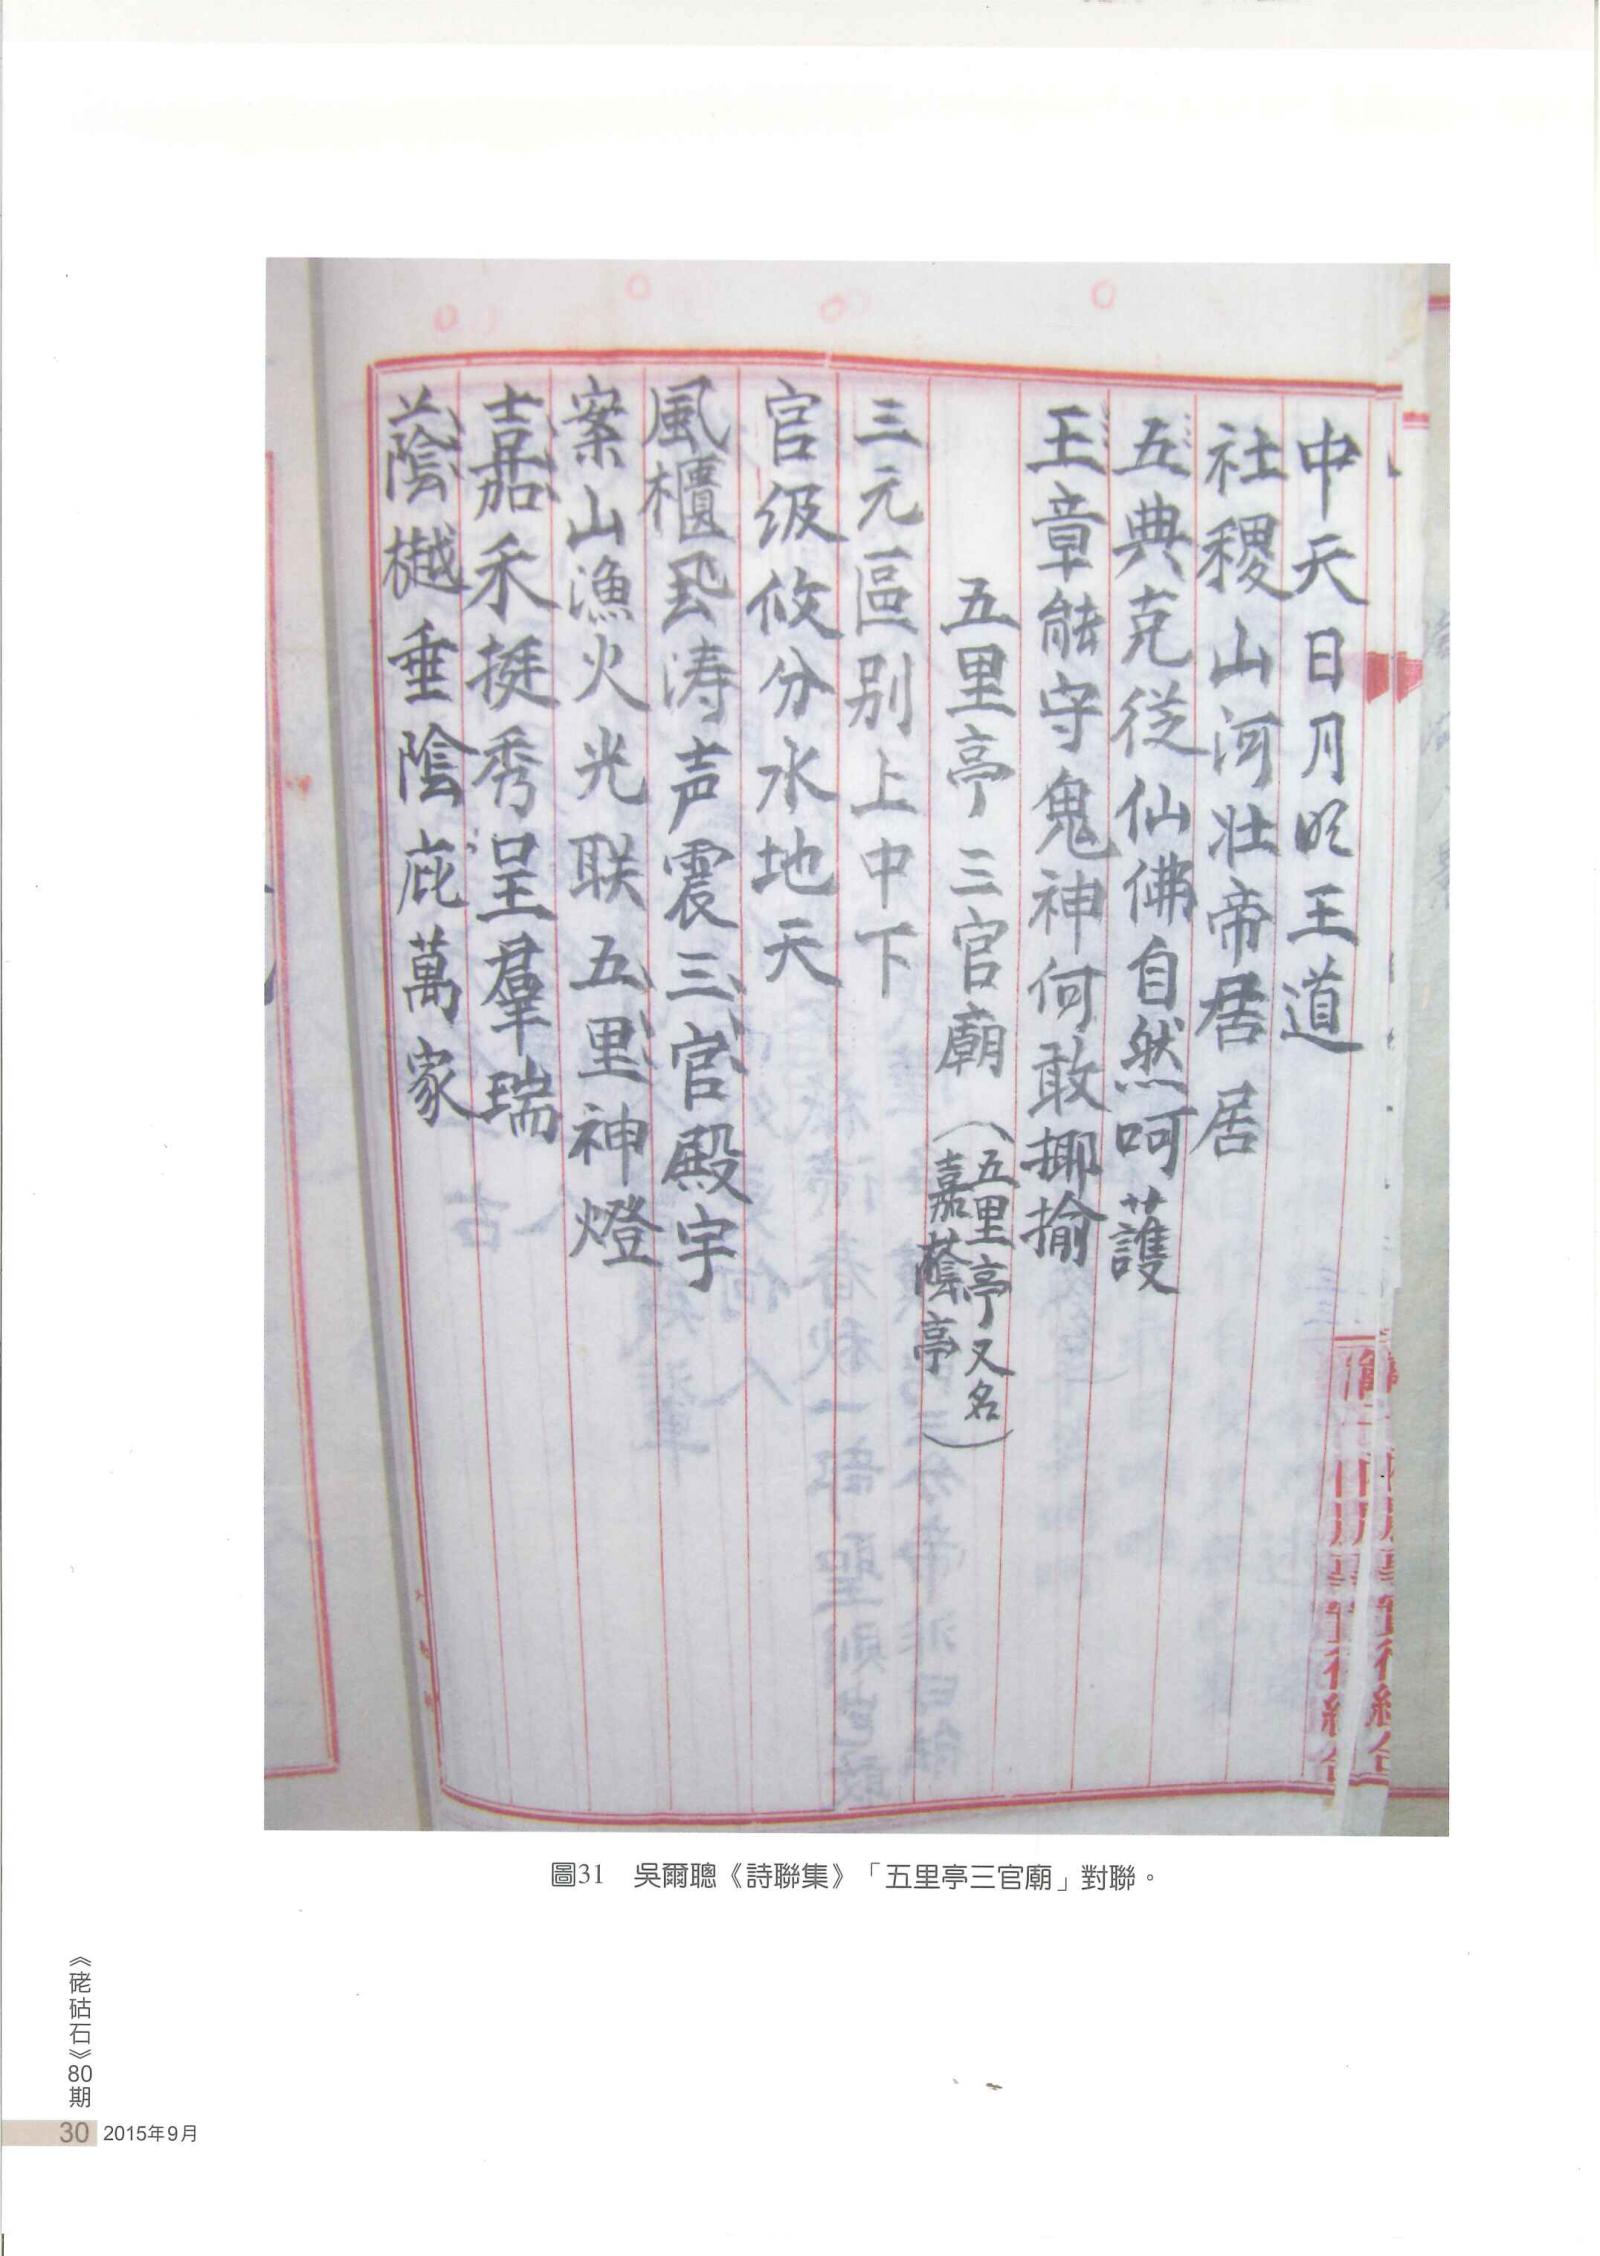 中天日月明王道
社稷山河壮帝居居
五典克從仙佛自然呵護
王章能守鬼神何敢揶揄
五里亭三官廟(五里亭又名
嘉蔭亭)
三元區別上中下
官级攸分水地天
風櫃风涛声震三官殿宇
案山漁火光联五里神燈
嘉禾挺秀呈羣瑞
蔭樾垂陰庇萬家
圖31 吳爾聰《詩聯集》「五里亭三官廟」對聯。
《硓𥑮石》80期
30 2015年9月